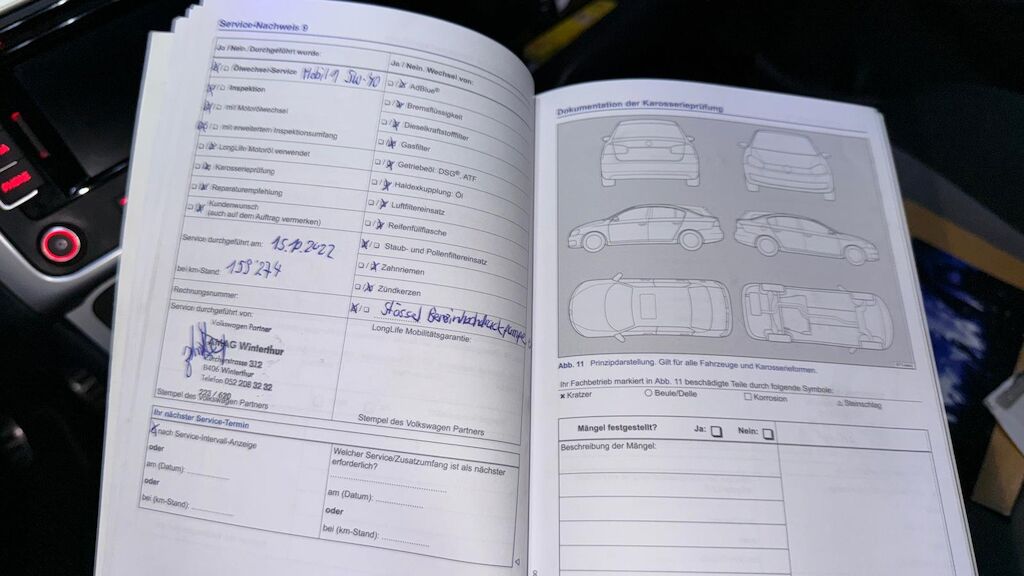 Service-Nachweis 9
Ja / Nein: Durchgeführt wurde:
Ölwechsel-Service Mobil 1 5W-40
Inspektion
mit Motorölwechsel
mit erweitertem Inspektionsumfang
LongLife Motoröl verwendet
Karosserieprüfung
Reparaturempfehlung
Kundenwunsch
(auch auf dem Auftrag vermerken)
Service durchgeführt am: 15.12.2022
bei km-Stand: 159'274
Rechnungsnummer:
Service durchgeführt von:
Volkswagen Partner
AMAG Winterthur
Zürcherstrasse 312
8406 Winterthur
Telefon 052 208 32 32
Stempel des Volkswagen Partners
Ja / Nein: Wechsel von:
AdBlue®
Bremsflüssigkeit
Dieselkraftstofffilter
Gasfilter
Getriebeöl: DSG®, ATF
Haldexkupplung: Öl
Luftfiltereinsatz
Reifenfüllflasche
Staub- und Pollenfiltereinsatz
Zahnriemen
Zündkerzen
Stössel
LongLife Mobilitätsgarantie:
Stempel des Volkswagen Partners
Ihr nächster Service-Termin
nach Service-Intervall-Anzeige
oder
am (Datum):
oder
bei (km-Stand):
Welcher Service/Zusatzumfang ist als nächster
erforderlich?
am (Datum):
oder
bei (km-Stand):
Dokumentation der Karosserieprüfung
Abb. 11 Prinzipdarstellung. Gilt für alle Fahrzeuge und Karosserieformen.
Ihr Fachbetrieb markiert in Abb. 11 beschädigte Teile durch folgende Symbole:
x Kratzer
Beule/Delle
Korrosion
Steinschlag
Mängel festgestellt? Ja: Nein:
Beschreibung der Mängel: